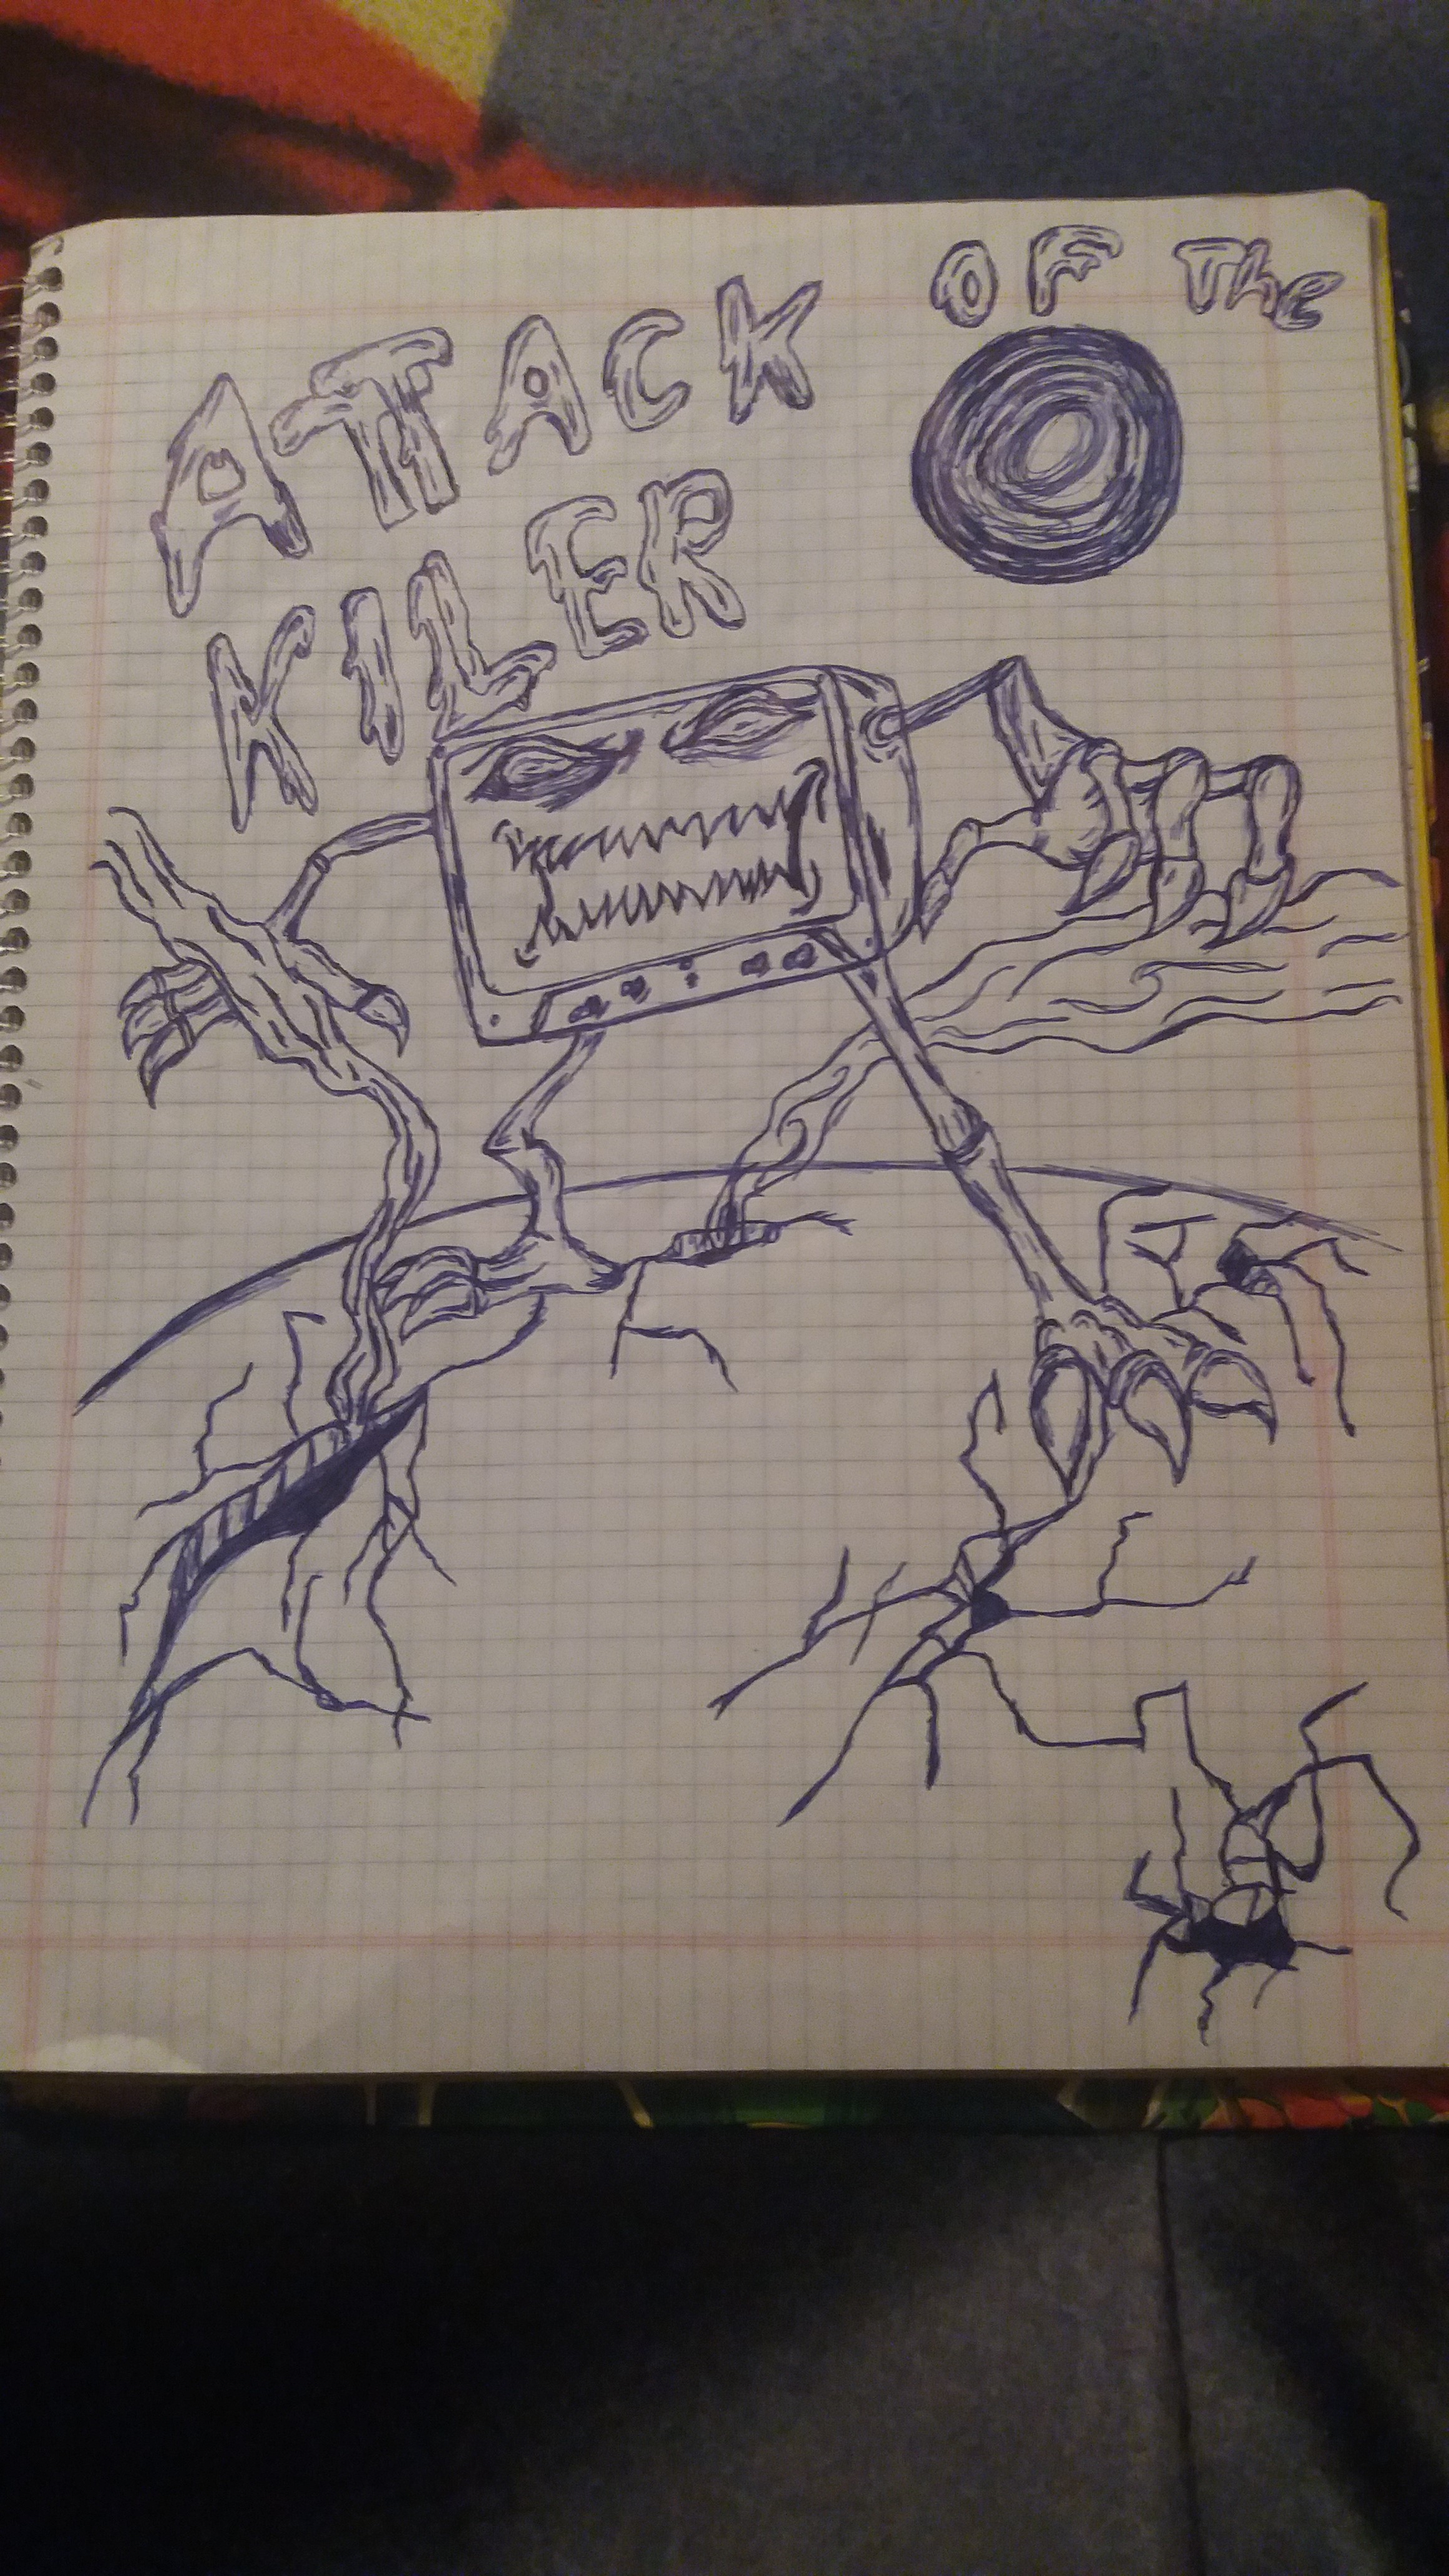 ATTACK OF The
KILER